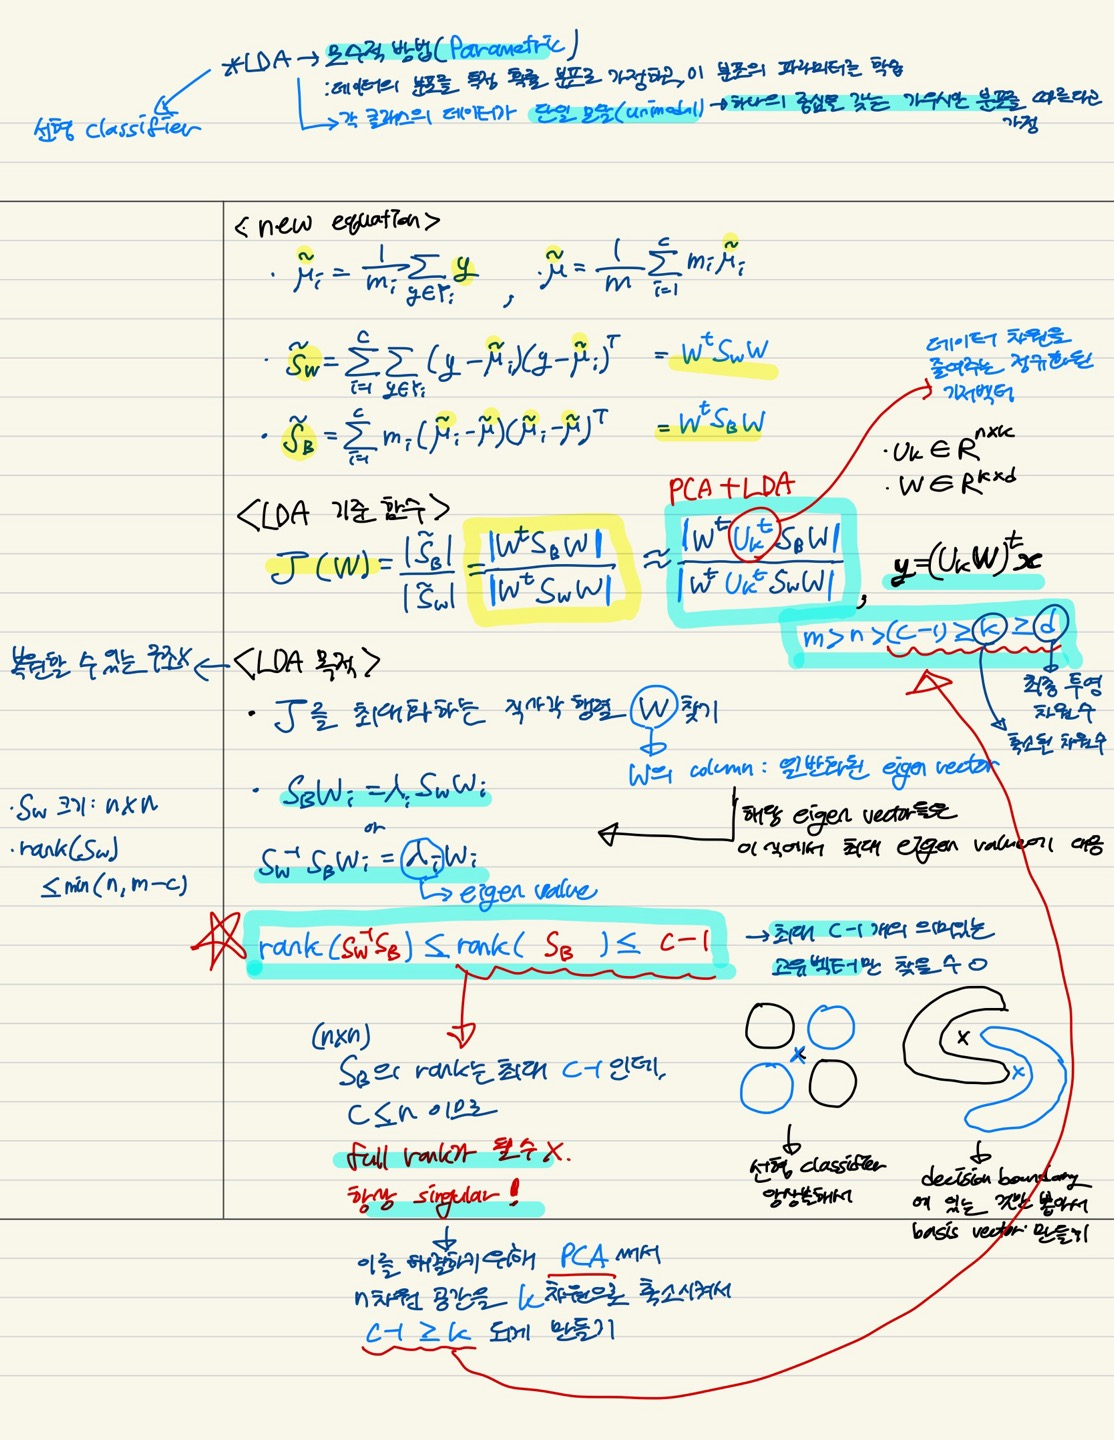 *LDA → 모수적 방법(Parametric)
: 데이터의 분포를 특정 확률 분포로 가정하고, 이 분포의 파라미터를 학습
선형 classifier
각 클래스의 데이터가 단일 모달(unimodal) → 하나의 중심을 갖는 가우시안 분포를 따른다고
가정
<new equation>
· μ̃ᵢ = 1/mᵢ Σ_{y∈Yᵢ} y , · μ̃ = 1/m Σ_{i=1}^{c} mᵢ μ̃ᵢ
· S̃_W = Σ_{i=1}^{c} Σ_{y∈Yᵢ} (y − μ̃ᵢ)(y − μ̃ᵢ)^T = W^t S_W W
· S̃_B = Σ_{i=1}^{c} mᵢ (μ̃ᵢ − μ̃)(μ̃ᵢ − μ̃)^T = W^t S_B W
데이터 차원을
줄여주는 정규화된
기저벡터
· U_k ∈ R^{n×k}
· W ∈ R^{k×d}
PCA + LDA
<LDA 기준 함수>
J(W) = |S̃_B| / |S̃_W| = |W^t S_B W| / |W^t S_W W| ≈ |W^t U_k^t S_B W| / |W^t U_k^t S_W W| , y = (U_k W)^t x
m > n > (c−1) ≥ k ≥ d
최종 투영
차원수
축소된 차원수
복원할 수 있는 구조X ← <LDA 목적>
· J를 최대화하는 직사각 행렬 W 찾기
W의 column : 일반화된 eigen vector
해당 eigen vector들은
이 식에서 최대 eigen value에 대응
· S_B Wᵢ = λᵢ S_W Wᵢ
or
S_W^{-1} S_B Wᵢ = λᵢ Wᵢ
→ eigen value
· S_W 크기 : n×n
· rank(S_W)
≤ min(n, m−c)
☆ rank(S_W^{-1} S_B) ≤ rank( S_B ) ≤ c−1
→ 최대 c−1개의 의미있는
고유벡터만 찾을 수 O
(n×n)
S_B의 rank는 최대 c−1 인데,
c ≤ n 이므로
full rank가 될 수 X.
항상 singular !
이를 해결하기 위해 PCA 써서
n차원 공간을 k차원으로 축소시켜서
c−1 ≥ k 되게 만들기
x
x
x
선형 classifier
앙상블해서
decision boundary
에 있는 것만 뽑아서
basis vector 만들기